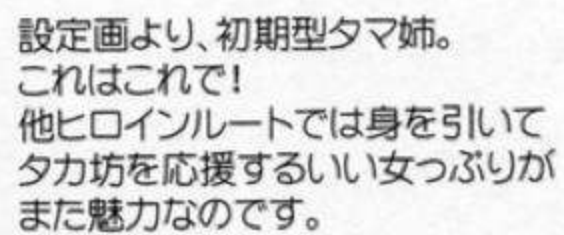 設定画より、初期型タマ姉。
これはこれで!
他ヒロインルートでは身を引いて
タカ坊を応援するいい女っぷりが
また魅力なのです。